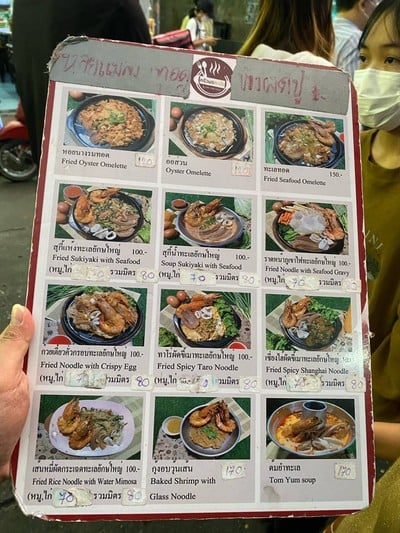 หอยนางรมทอด
Fried Oyster Omelette
ออสวน
Oyster Omelette
ทะเลทอด 150.-
Fried Seafood Omelette
สุกี้แห้งทะเลยักษ์ใหญ่ 100.-
Fried Sukiyaki with Seafood
(หมู,ไก่ 70 รวมมิตร 80
สุกี้น้ำทะเลยักษ์ใหญ่ 100.-
Soup Sukiyaki with Seafood
(หมู,ไก่ 70 รวมมิตร 80
ราดหน้าผู้เขาไฟทะเลยักษ์ใหญ่ 100.-
Fried Noodle with Seafood Gravy
(หมู,ไก่ รวมมิตร 80
ก๋วยเตี๋ยวคั่วกรอบทะเลยักษ์ใหญ่ 100.-
Fried Noodle with Crispy Egg
(หมู,ไก่ รวมมิตร 80
ทาโร่ผัดขี้เมาทะเลยักษ์ใหญ่ 100.-
Fried Spicy Taro Noodle
(หมู,ไก่ รวมมิตร 80
เซี่ยงไฮ้ผัดขี้เมาทะเลยักษ์ใหญ่ 100.-
Fried Spicy Shanghai Noodle
(หมู,ไก่ รวมมิตร 80
เส้นหมี่ผัดกระเฉดทะเลยักษ์ใหญ่ 100.-
Fried Rice Noodle with Water Mimosa
(หมู,ไก่ 70 รวมมิตร 80
กุ้งอบวุ้นเส้น
Baked Shrimp with
Glass Noodle 170
ต้มยำทะเล
Tom Yum soup 170